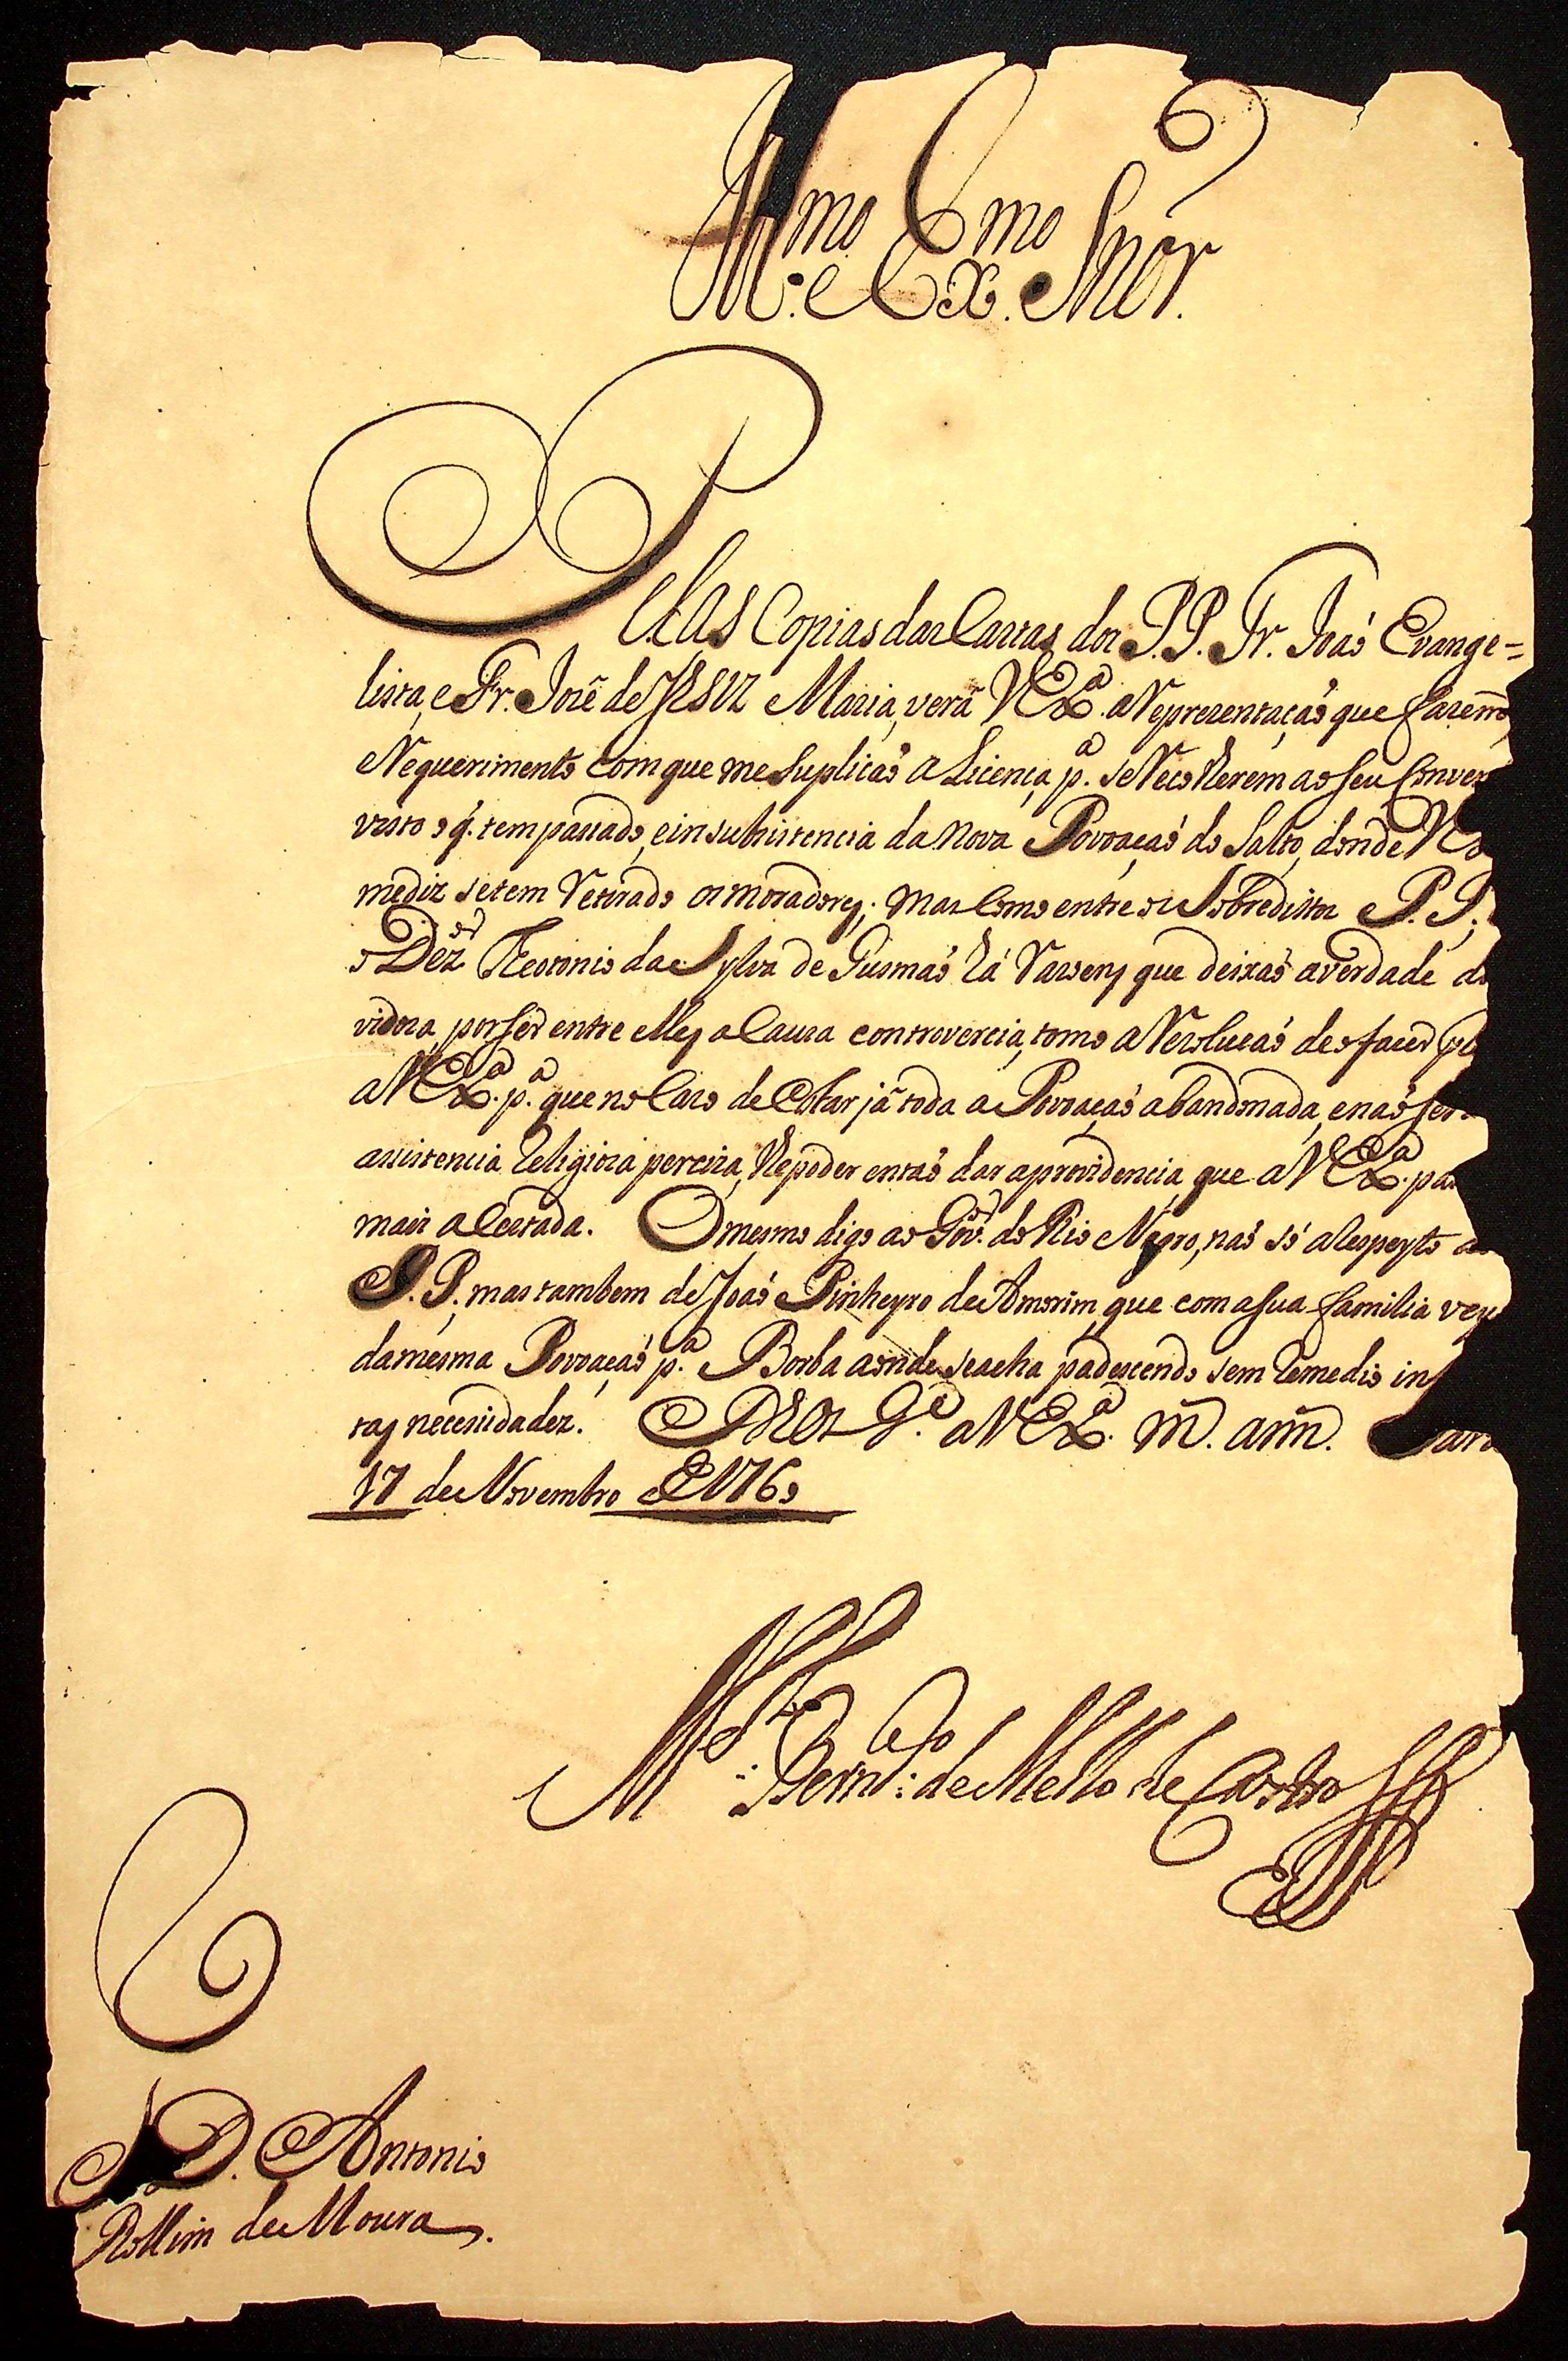 Ill.mo e Ex.mo Snõr.
Pelas Copias das Cartas dos P.P. Fr. Joaõ Evange=
lista, e Fr. Jozé de JESUZ Maria, verá V Ex.a a Reprezentaçaõ que fazem,
Requerimento com que me Suplicaõ a Licença p.a se Recolherem ao seu Conven
visto o q̃. tem passado, e insubsistencia da nova Povoaçaõ do Salto, donde
mediz se tem Retirado os moradores; mas como entre os Sobreditos P.P.,
o Dez.or Theotonio da Sylva de Gusmaõ há Razoens que deixaõ a verdade du
vidoza, por ser entre elles a Cauza controvercia, tomo a Rezoluçaõ de o fazer
a V Ex.a p.a que no Cazo de Estar já toda a Povoaçaõ abandonada, e naõ ser
assistencia Religioza perciza, lhe poder entaõ dar a providencia, que a V Ex.a pa
mais acertada. O mesmo digo ao Gov.or do Rio Negro, naõ só a Respeyto d
P.P., mas tambem de Joaõ Pinheyro de Amorim, que com a sua familia vey
da mesma Povoaçaõ p.a Borba aonde se acha padescendo sem Remedio inf
tas necessidades. DEOS G.e a V Ex.a m̃. ann̄. Pará
17 de Novembro E 1760
M.el Bern.do de Mello de Castro
S.r D. Antonio
Rollim de Moura.